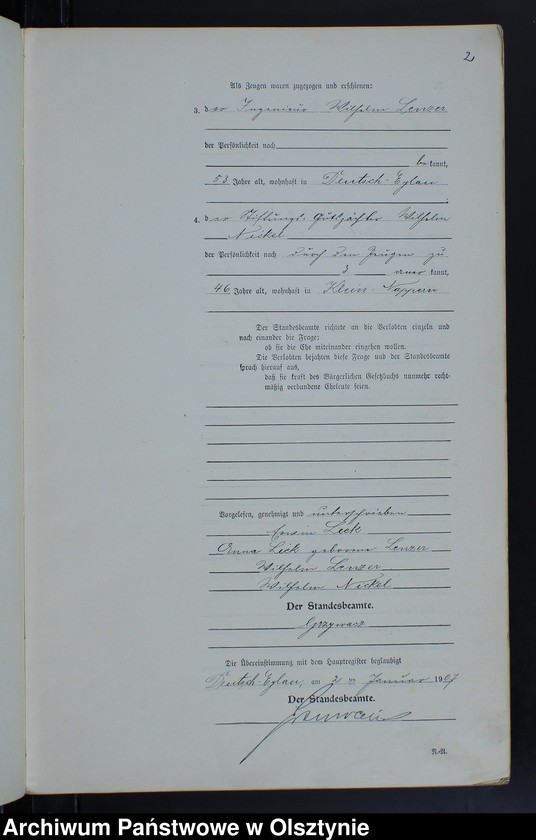 2
Als Zeugen waren zugezogen und erschienen:
3. der Ingenieur Wilhelm Lenzer
der Persönlichkeit nach
bekannt,
53 Jahre alt, wohnhaft in Deutsch-Eylau
4. der Stiftungs-Gutspächter Wilhelm
Nickel
der Persönlichkeit nach durch den Zeugen zu
3 anerkannt,
46 Jahre alt, wohnhaft in Klein-Nappern
Der Standesbeamte richtete an die Verlobten einzeln und
nach einander die Frage:
ob sie die Ehe miteinander eingehen wollen.
Die Verlobten bejahten diese Frage und der Standesbeamte
sprach hierauf aus,
daß sie kraft des Bürgerlichen Gesetzbuchs nunmehr recht-
mäßig verbundene Eheleute seien.
Vorgelesen, genehmigt und unterschrieben
Erwin Lick
Anna Lick geborene Lenzer
Wilhelm Lenzer
Wilhelm Nickel
Der Standesbeamte.
Grzywacz
Die Übereinstimmung mit dem Hauptregister beglaubigt
Deutsch-Eylau, am Januar 1907
Der Standesbeamte.
N.-N.
Archiwum Państwowe w Olsztynie